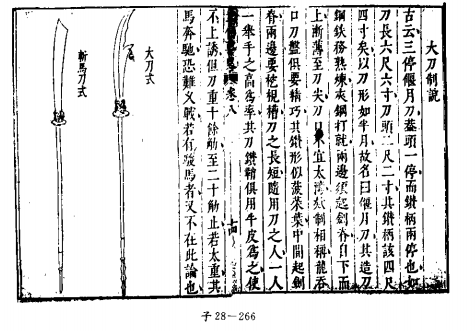 大刀制說
古云三停偃月刀葢頭一停而鐏柄兩停也如
刀長六尺六寸刀頭二尺二寸其鐏柄該四尺
四寸矣以刀形如半月故名曰偃月刀其造刀
鋼鉄務熟煉夾鋼打就兩邊須起劍脊自下而
上漸薄至刀尖刀口不宜太制相稱龍吞
口刀盤俱要精巧其鐏形似菠菜葉中間起劍
脊兩邊要挖槽刀之長短隨用刀之人一人
卷八
十四
一舉手之高為率其刀鐏鞘俱用牛皮為之使
不上誘但刀重十餘觔至二十觔止若太重其
馬奔馳恐難戰若有駿馬者又不在此論也
大刀式
斬馬刀式
子28－266